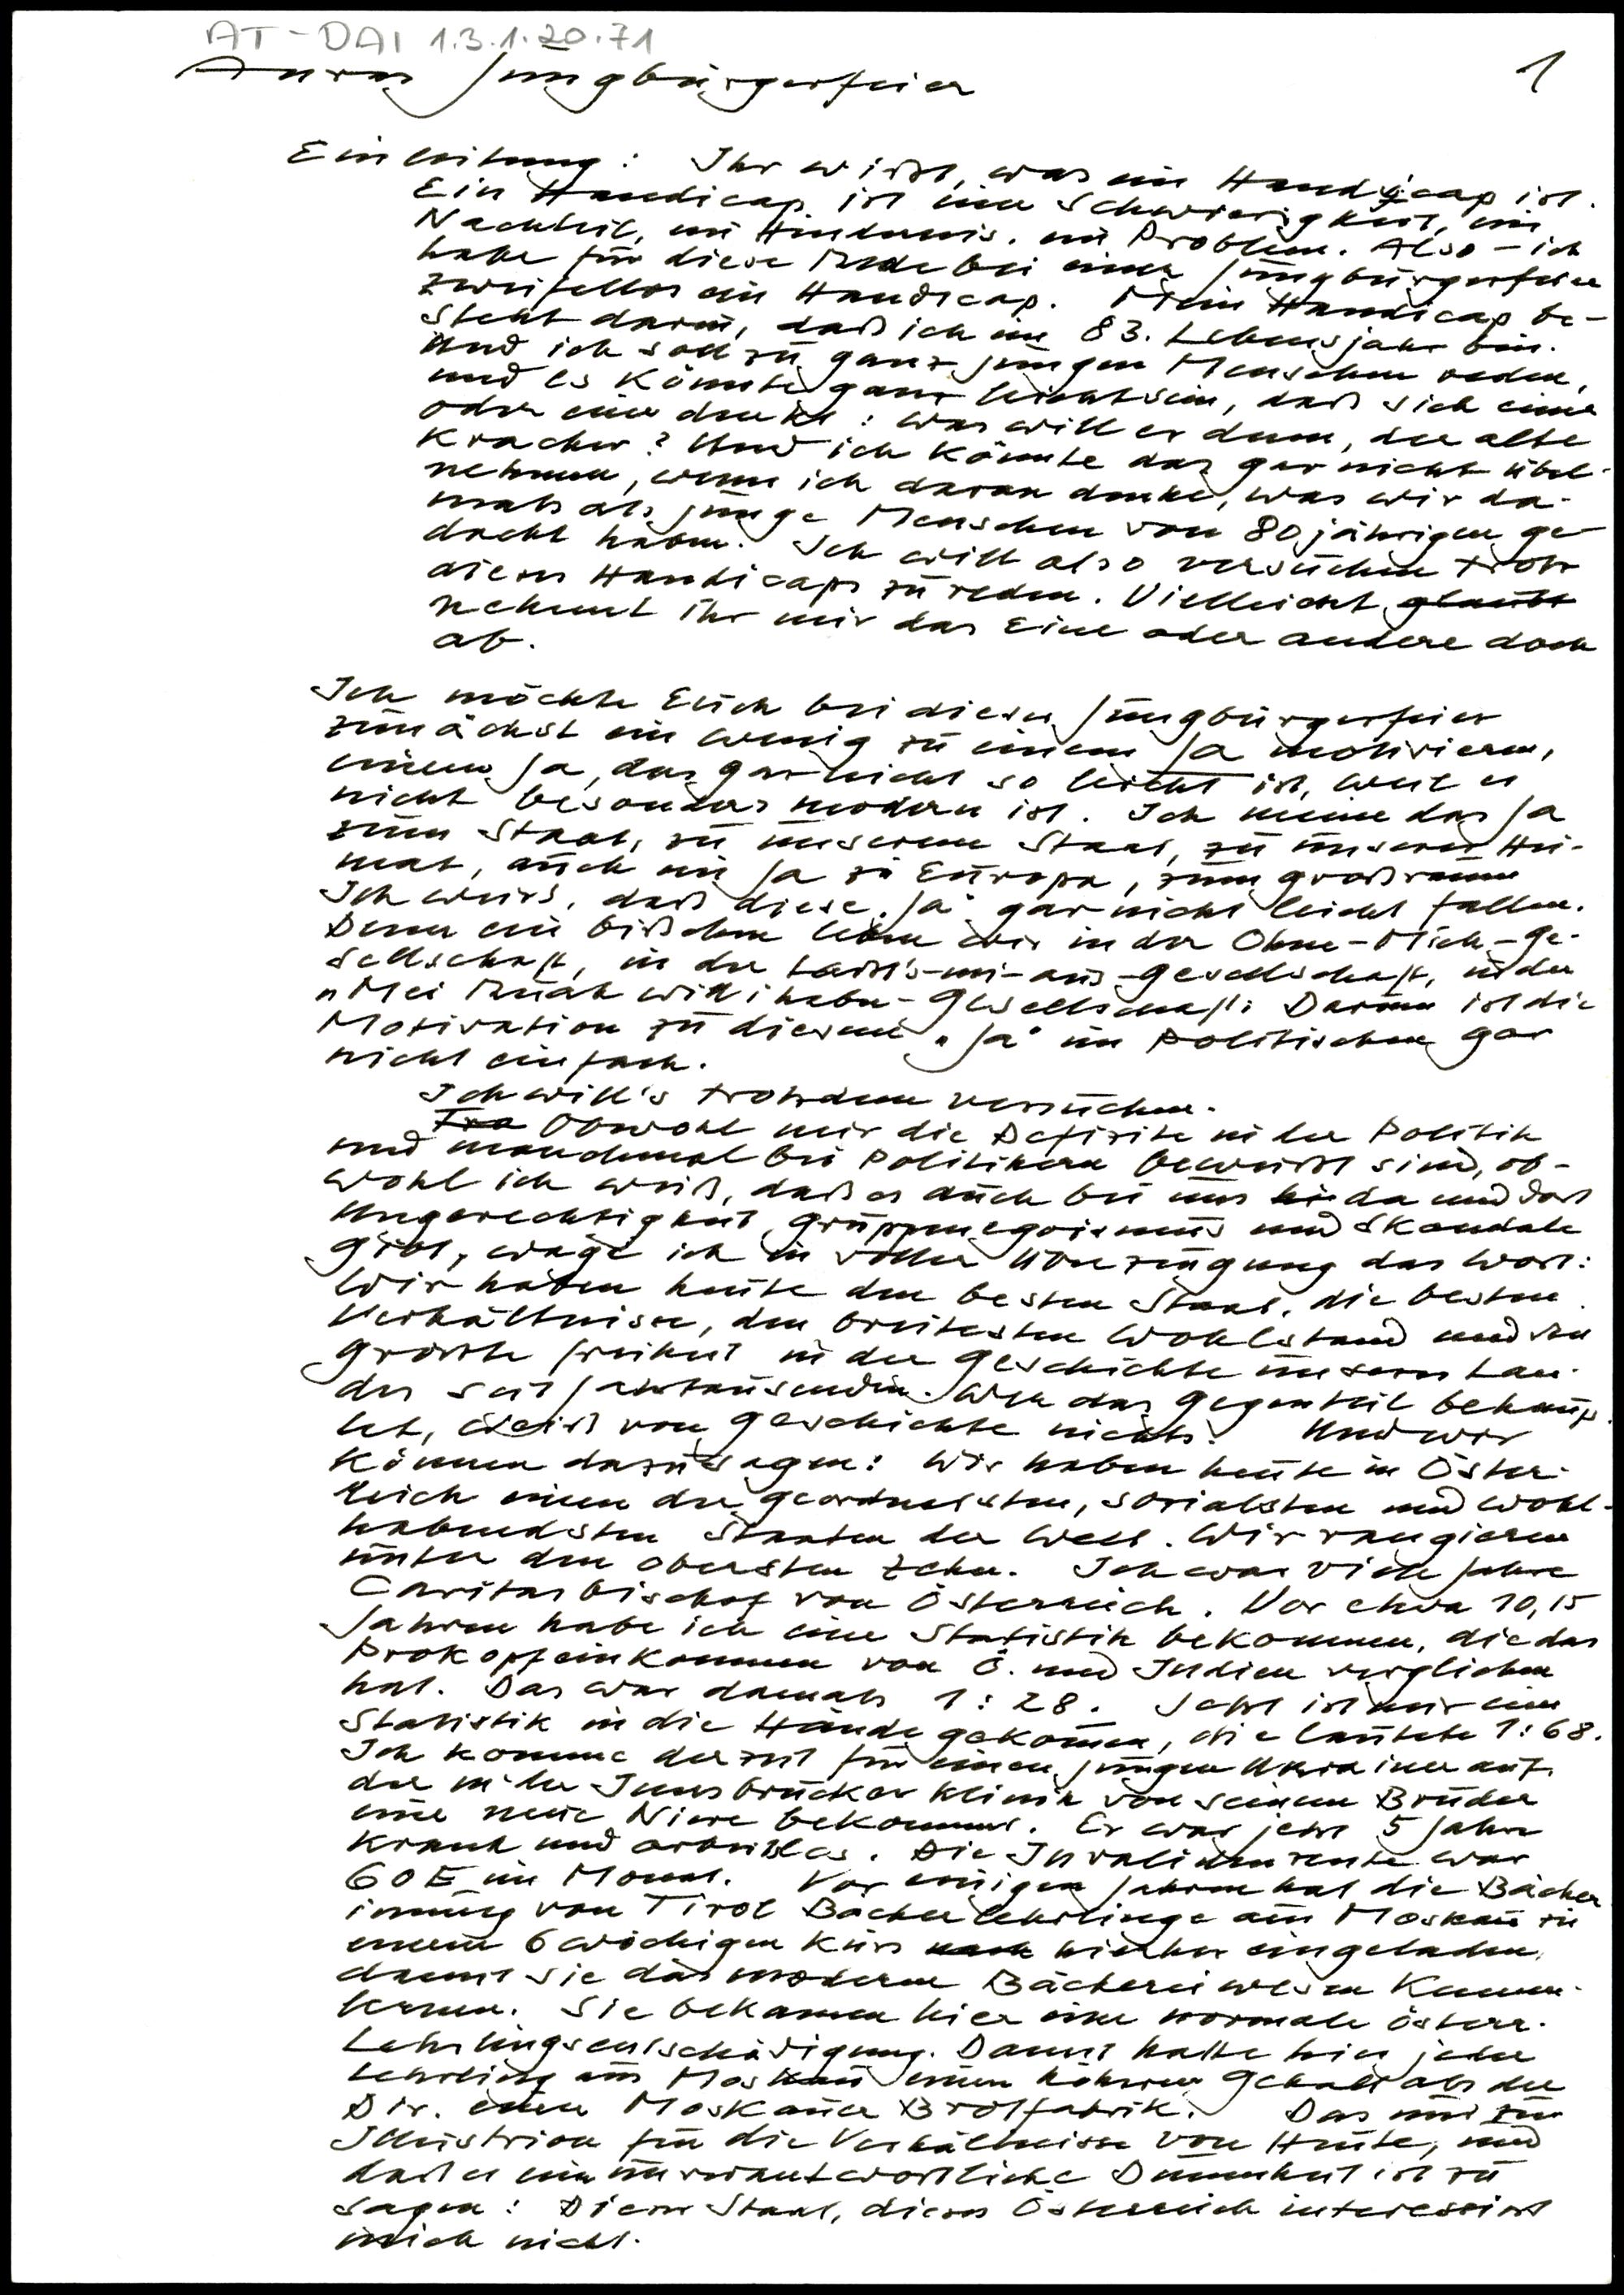 AT-DAI 1.3.1.20.71
Jungbürgerfeier
1
Einleitung: Ihr wißt, was ein Handicap ist.
Ein Handicap ist eine Schwierigkeit, ein
Nachteil, ein Hindernis, ein Problem. Also – ich
habe für diese Rede bei einer Jungbürgerfeier
zweifellos ein Handicap. Mein Handicap be-
steht darin, daß ich im 83. Lebensjahr bin.
Und ich soll zu ganz jungen Menschen reden,
und es könnte ganz leicht sein, daß sich einer
oder eine denkt: was will er denn, der alte
Kracher? Und ich könnte das gar nicht übel-
nehmen, wenn ich daran denke, was wir da-
mals als junge Menschen von 80jährigen ge-
dacht haben. Ich will also versuchen trotz
dieses Handicaps zu reden. Vielleicht glaubt
nehmt ihr mir das Eine oder andere doch
ab.
Ich möchte Euch bei dieser Jungbürgerfeier
zunächst ein wenig zu einem Ja motivieren,
einem Ja, das gar nicht so leicht ist, weil es
nicht besonders modern ist. Ich meine das Ja
zum Staat, zu unserem Staat, zu unserer Hei-
mat, auch ein Ja zu Europa, zum Großraum
Ich weiß, daß diese „Ja" gar nicht leicht fallen.
Denn ein bißchen leben wir in der Ohne-Mich-Ge-
sellschaft, in der Laßt's-mi-aus-Gesellschaft, in der
„Mei Ruah will i haben-Gesellschaft. Darum ist die
Motivation zu diesem „Ja" im Politischen gar
nicht einfach.
Ich will's trotzdem versuchen.
Tro Obwohl mir die Defizite in der Politik
und manchmal bei Politikern bewußt sind, ob-
wohl ich weiß, daß es auch bei uns hie da und dort
Ungerechtigkeit, Gruppenegoismus und Skandale
gibt, wage ich in voller Überzeugung das Wort:
Wir haben heute den besten Staat, die besten
Verhältnisse, den breitesten Wohlstand und die
größte Freiheit in der Geschichte unseres Lan-
des seit Jahrtausenden. Wer das Gegenteil behaup-
tet, weiß von Geschichte nichts. Und wir
können dazusagen: Wir haben heute in Öster-
reich einen der geordnetsten, sozialsten und wohl-
habendsten Staaten der Welt. Wir rangieren
unter den obersten Zehn. Ich war viele Jahre
Caritasbischof von Österreich. Vor etwa 10, 15
Jahren habe ich eine Statistik bekommen, die das
Prokopfeinkommen von Ö. und Indien verglichen
hat. Das war damals 1:28. Jetzt ist mir eine
Statistik in die Hände gekomen, die lautete 1:68.
Ich komme derzeit für einen jungen Ukrainer auf,
der in der Innsbrucker Klinik von seinem Bruder
eine neue Niere bekommt. Er war jetzt 5 Jahre
krank und arbeitslos. Die Invalidenrente war
60 E im Monat. Vor einigen Jahren hat die Bäcker
innung von Tirol Bäckerlehrlinge aus Moskau zu
einem 6 wöchigen Kurs nach hierher eingeladen,
damit sie das moderne Bäckereiwesen kennen-
lernen. Sie bekamen hier eine normale österr.
Lehrlingsentschädigung. Damit hatte hier jeder
Lehrling aus Moskau einen höheren Gehalt als der
Dir. einer Moskauer Brotfabrik. Das nur zur
Illustrion für die Verhältnisse von Heute, und
daß es eine unverantwortliche Dummheit ist zu
sagen: Dieser Staat, dieses Österreich interessiert
mich nicht.